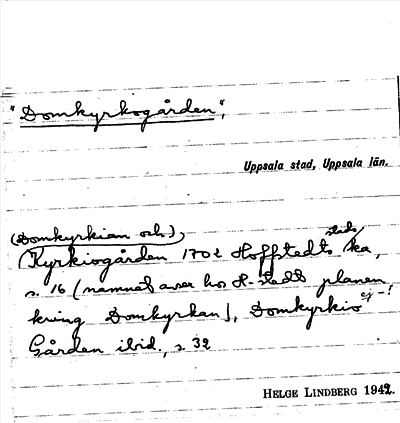 "Domkyrkogården",
Uppsala stad, Uppsala län.
(Domkyrkian och),
Kyrkiogården 1702 Hoffstedts stads/ka,
s. 16 (namnet avser hos H-stedt planen
kring Domkyrkan), Domkyrkio ej -!
Gården ibid., s. 32
HELGE LINDBERG 1942.